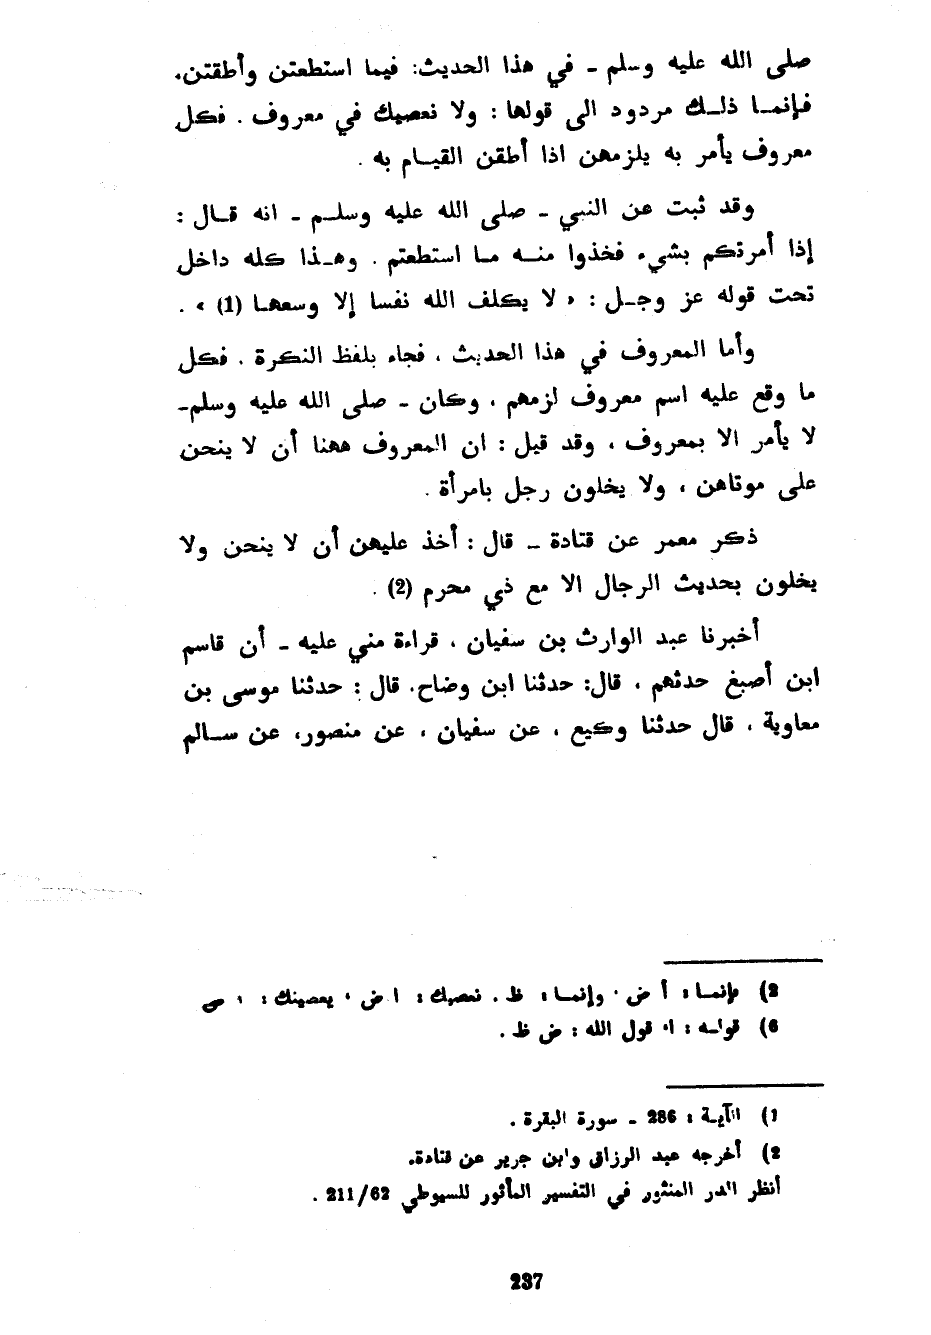 صلى الله عليه وسلم ـ في هذا الحديث: فيما استطعتن وأطقتن،
فإنمـا ذلـك مردود الى قولها : ولا نعصيك في معروف . فكل
معروف يأمر به يلزمهن اذا أطقن القيـام به .
وقد ثبت عن النبي ـ صلى الله عليه وسلـم ـ انه قـال :
إذا أمرتكم بشيء فخذوا منـه مـا استطعتم . وهـذا كله داخل
تحت قوله عز وجـل : « لا يكلف الله نفسا إلا وسعهـا (1) » .
وأما المعروف في هذا الحديث ، فجاء بلفظ النكرة . فكل
ما وقع عليه اسم معروف لزمهم ، وكان ـ صلى الله عليه وسلم ـ
لا يأمر الا بمعروف ، وقد قيل : ان المعروف ههنا أن لا ينحن
على موتاهن ، ولا يخلون رجل بامرأة .
ذكر معمر عن قتادة ـ قال : أخذ عليهن أن لا ينحن ولا
يخلون بحديث الرجال الا مع ذي محرم (2) .
أخبرنا عبد الوارث بن سفيان ، قراءة مني عليه ـ أن قاسم
ابن أصبغ حدثهم ، قال: حدثنا ابن وضاح، قال : حدثنا موسى بن
معاوية ، قال حدثنا وكيع ، عن سفيان ، عن منصور، عن سـالم
2) فإنمـا : أ ض ، وإنمـا : ظ . نعصيك : ا ض ، يعصينك :
6) قولـه : ا، قول الله : ض ظ .
1) الآيـة : 286 ـ سورة البقرة .
2) أخرجه عبد الرزاق وابن جرير عن قتادة.
أنظر الدر المنثور في التفسير المأثور للسيوطي 211/62 .
237